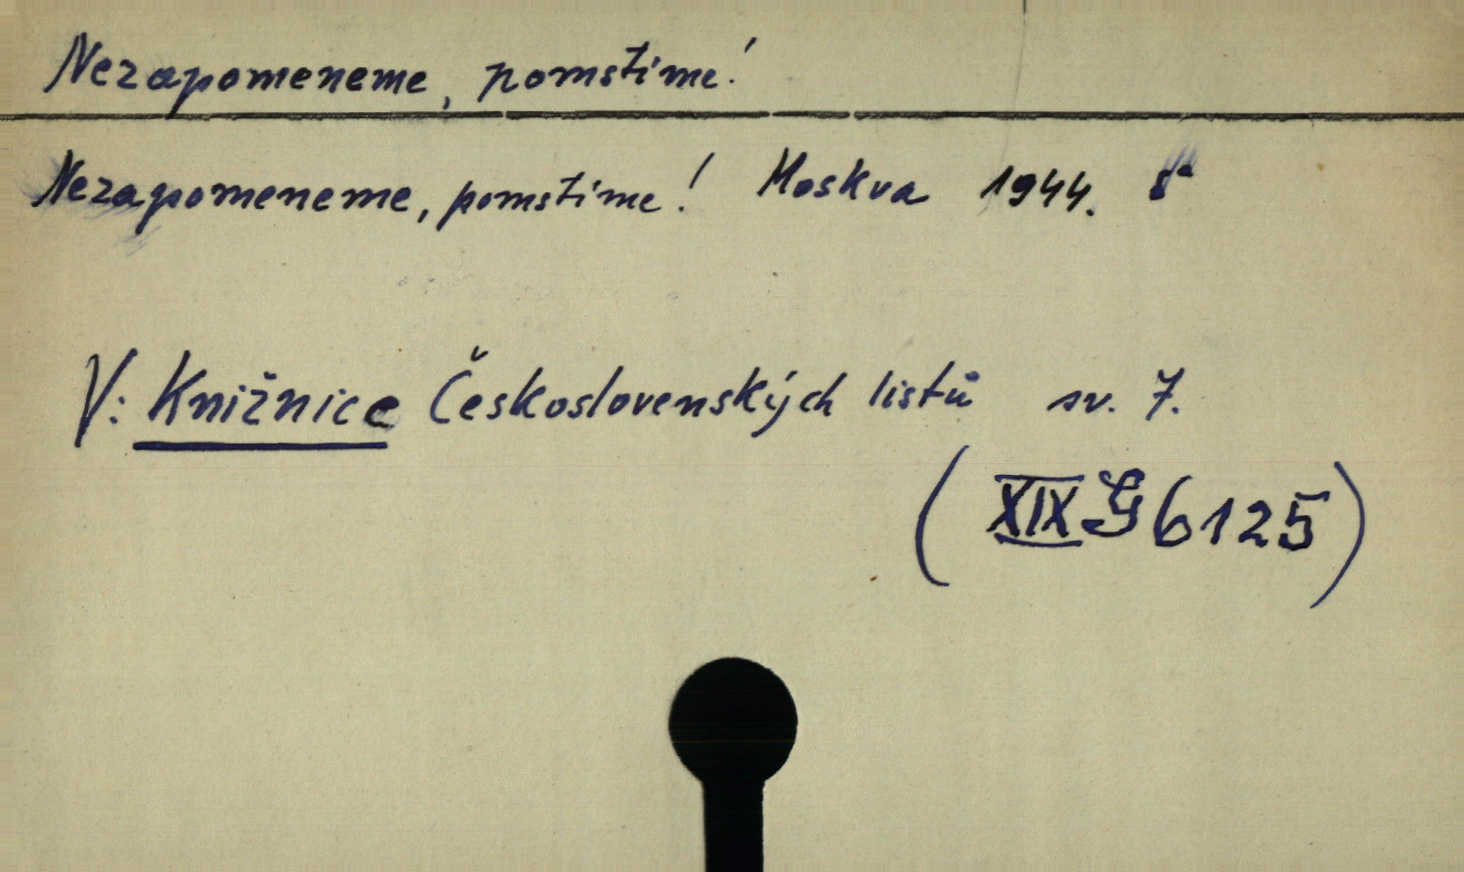 Nezapomeneme, pomstíme!
Nezapomeneme, pomstíme! Moskva 1944. 8°
V: Knižnice Československých listů sv. 7.
(XIX G 6125)